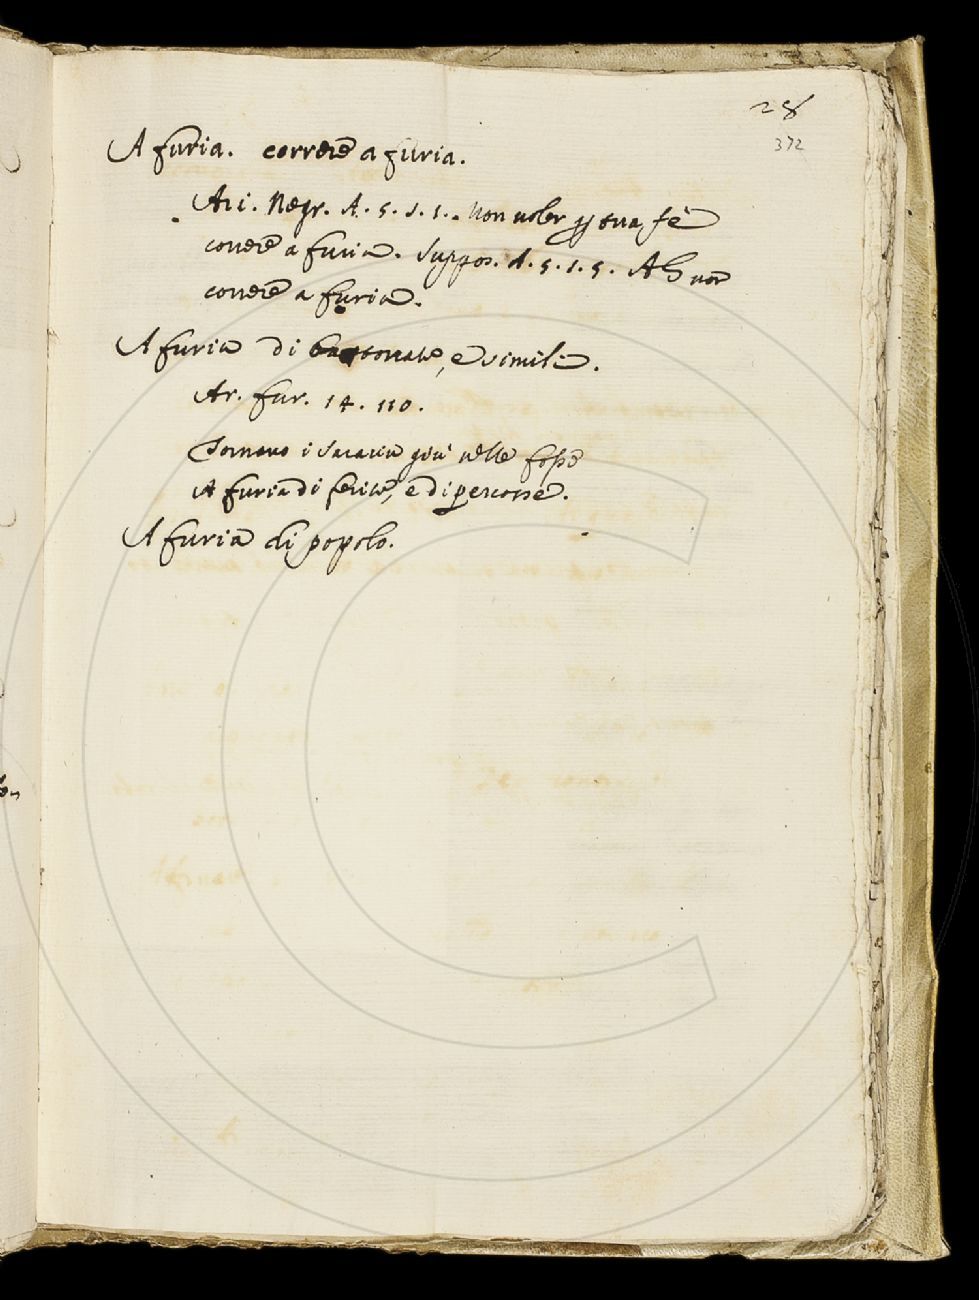 28
372
A furia. correre a furia.
Ari. Negr. A. 5. s. 1.. Non uoler per tua fè
correre a furia. Suppos. A. 5. s. 5. Ah non
correre a furia.
A furia di bastonate, e simili.
Ar. fur. 14. 110.
Tornano i Saracin giù nelle fosse
A furia di ferite, e di percosse.
A furia di popolo.